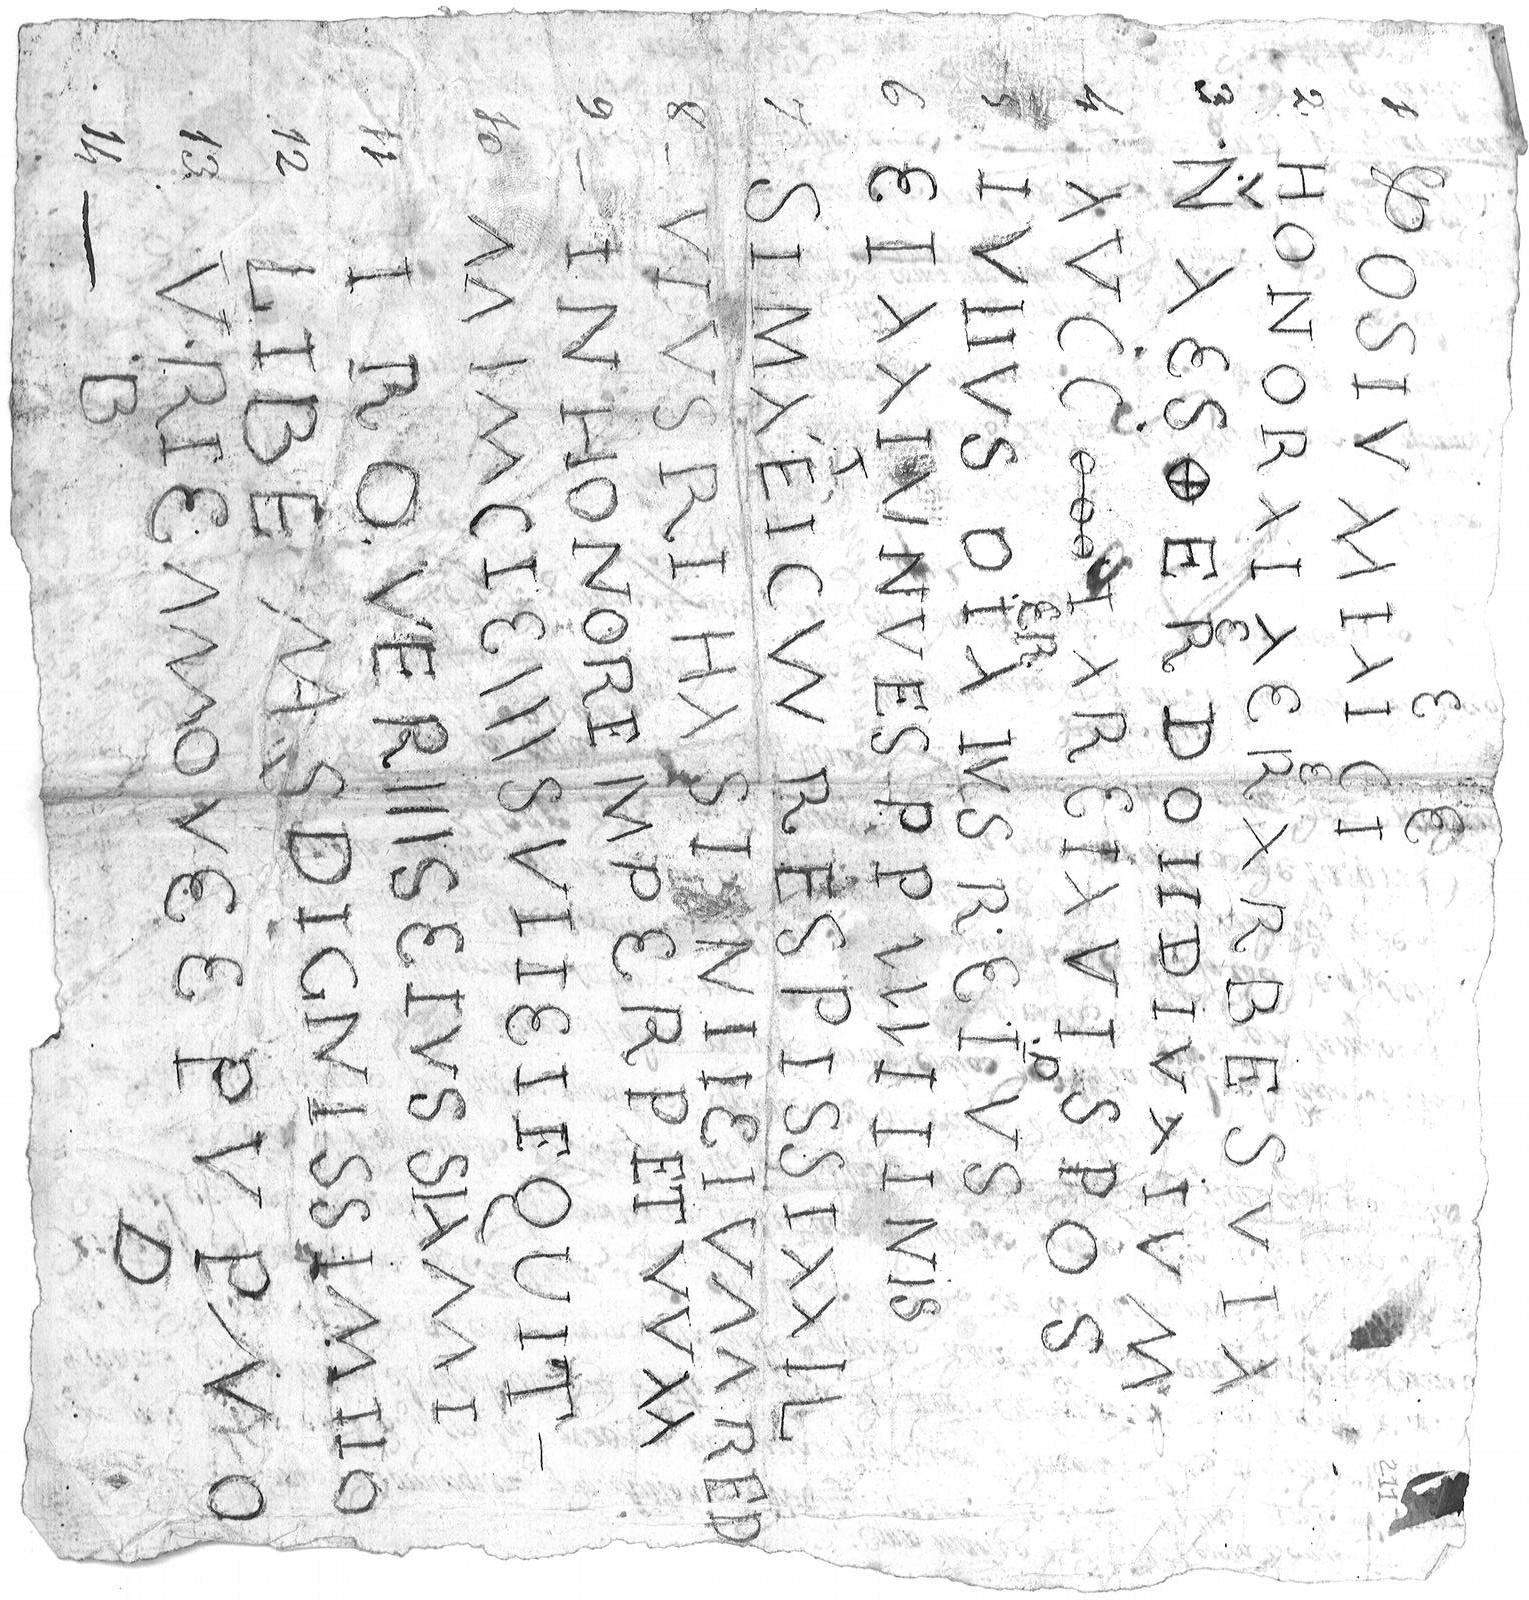 1 COSIVMIAICI
2 HONORAIAERARBESVIA
3 N AES⊕ERDOIIDIVAIVM
4 AVCC IAREIAVISPOS
5 IVIIVS OIA INSREIVS
6 EIAAINNVESPPVVIIINIS
7 SIMAEICVV RESPISSIAAIL
8 – VIVS RIHA SINIIEIVMARED
9 – IN HONOREIMPERPETVVAA
10 MIMCIEIIISVIIEIEQUIT –
11 IRO.VERIIISEIVSSIAMMI
12 LIBE AASDIGNISSIMIIO
13 VRIEAMOVEEPVPMO
14 — B D
211